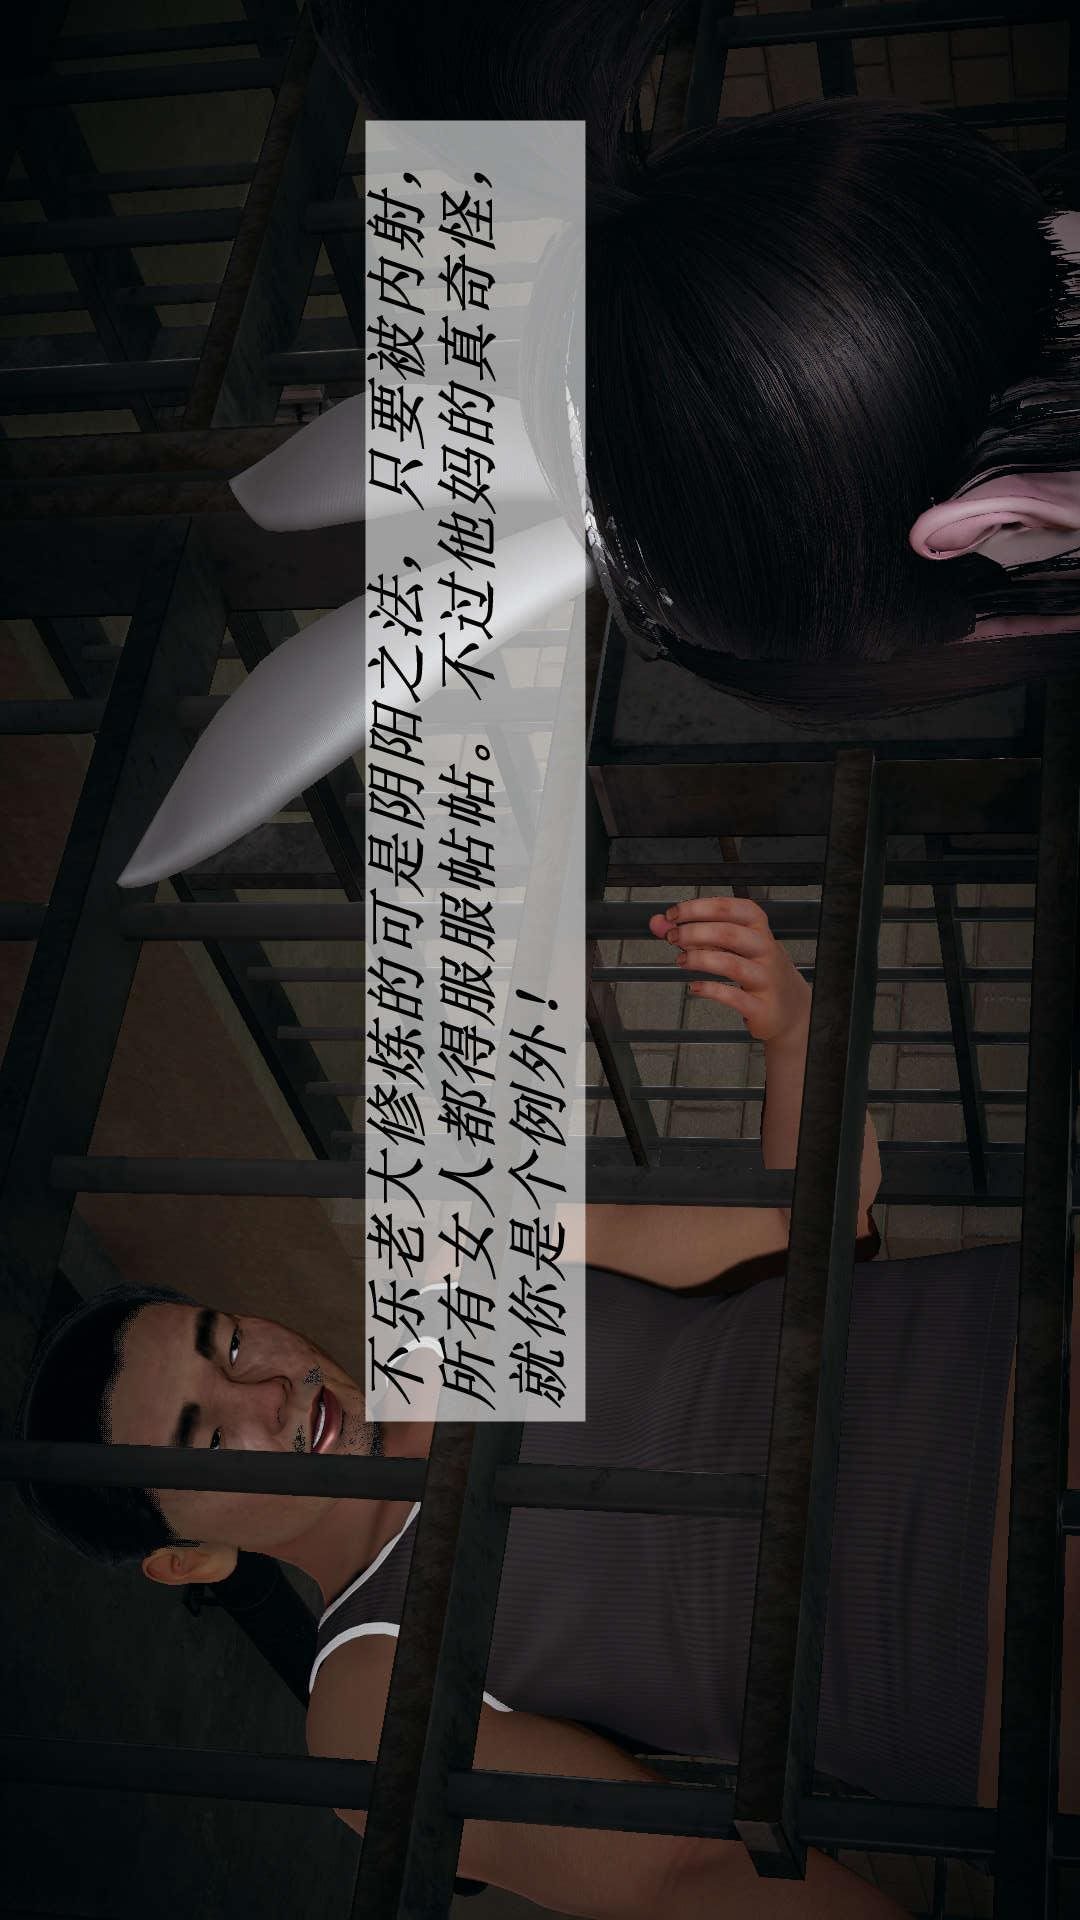 不乐老大修炼的可是阴阳之法，只要被内射，
所有女人都得服服帖帖。不过他妈的真奇怪，
就你是个例外！